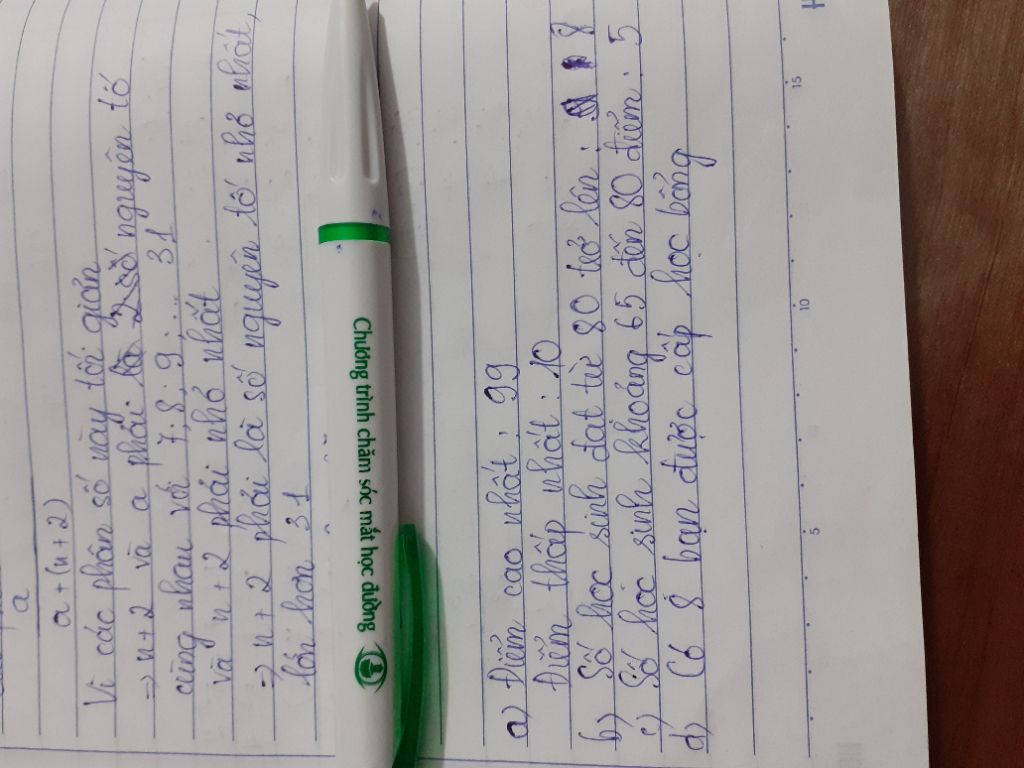 a
a + (n + 2)
Vì các phân số này tối giản
⇒ n + 2 và a phải nguyên tố
cùng nhau với 7 ; 8 ; 9 ; ... 31
và n + 2 phải nhỏ nhất
⇒ n + 2 phải là số nguyên tố nhỏ nhất,
lớn hơn 31
Chương trình chăm sóc mắt học đường
a) Điểm cao nhất : 99
Điểm thấp nhất : 10
b) Số học sinh đạt từ 80 trở lên : 8
c) Số học sinh khoảng 65 đến 80 điểm : 5
d) Có 8 bạn được cấp học bổng
5
10
15